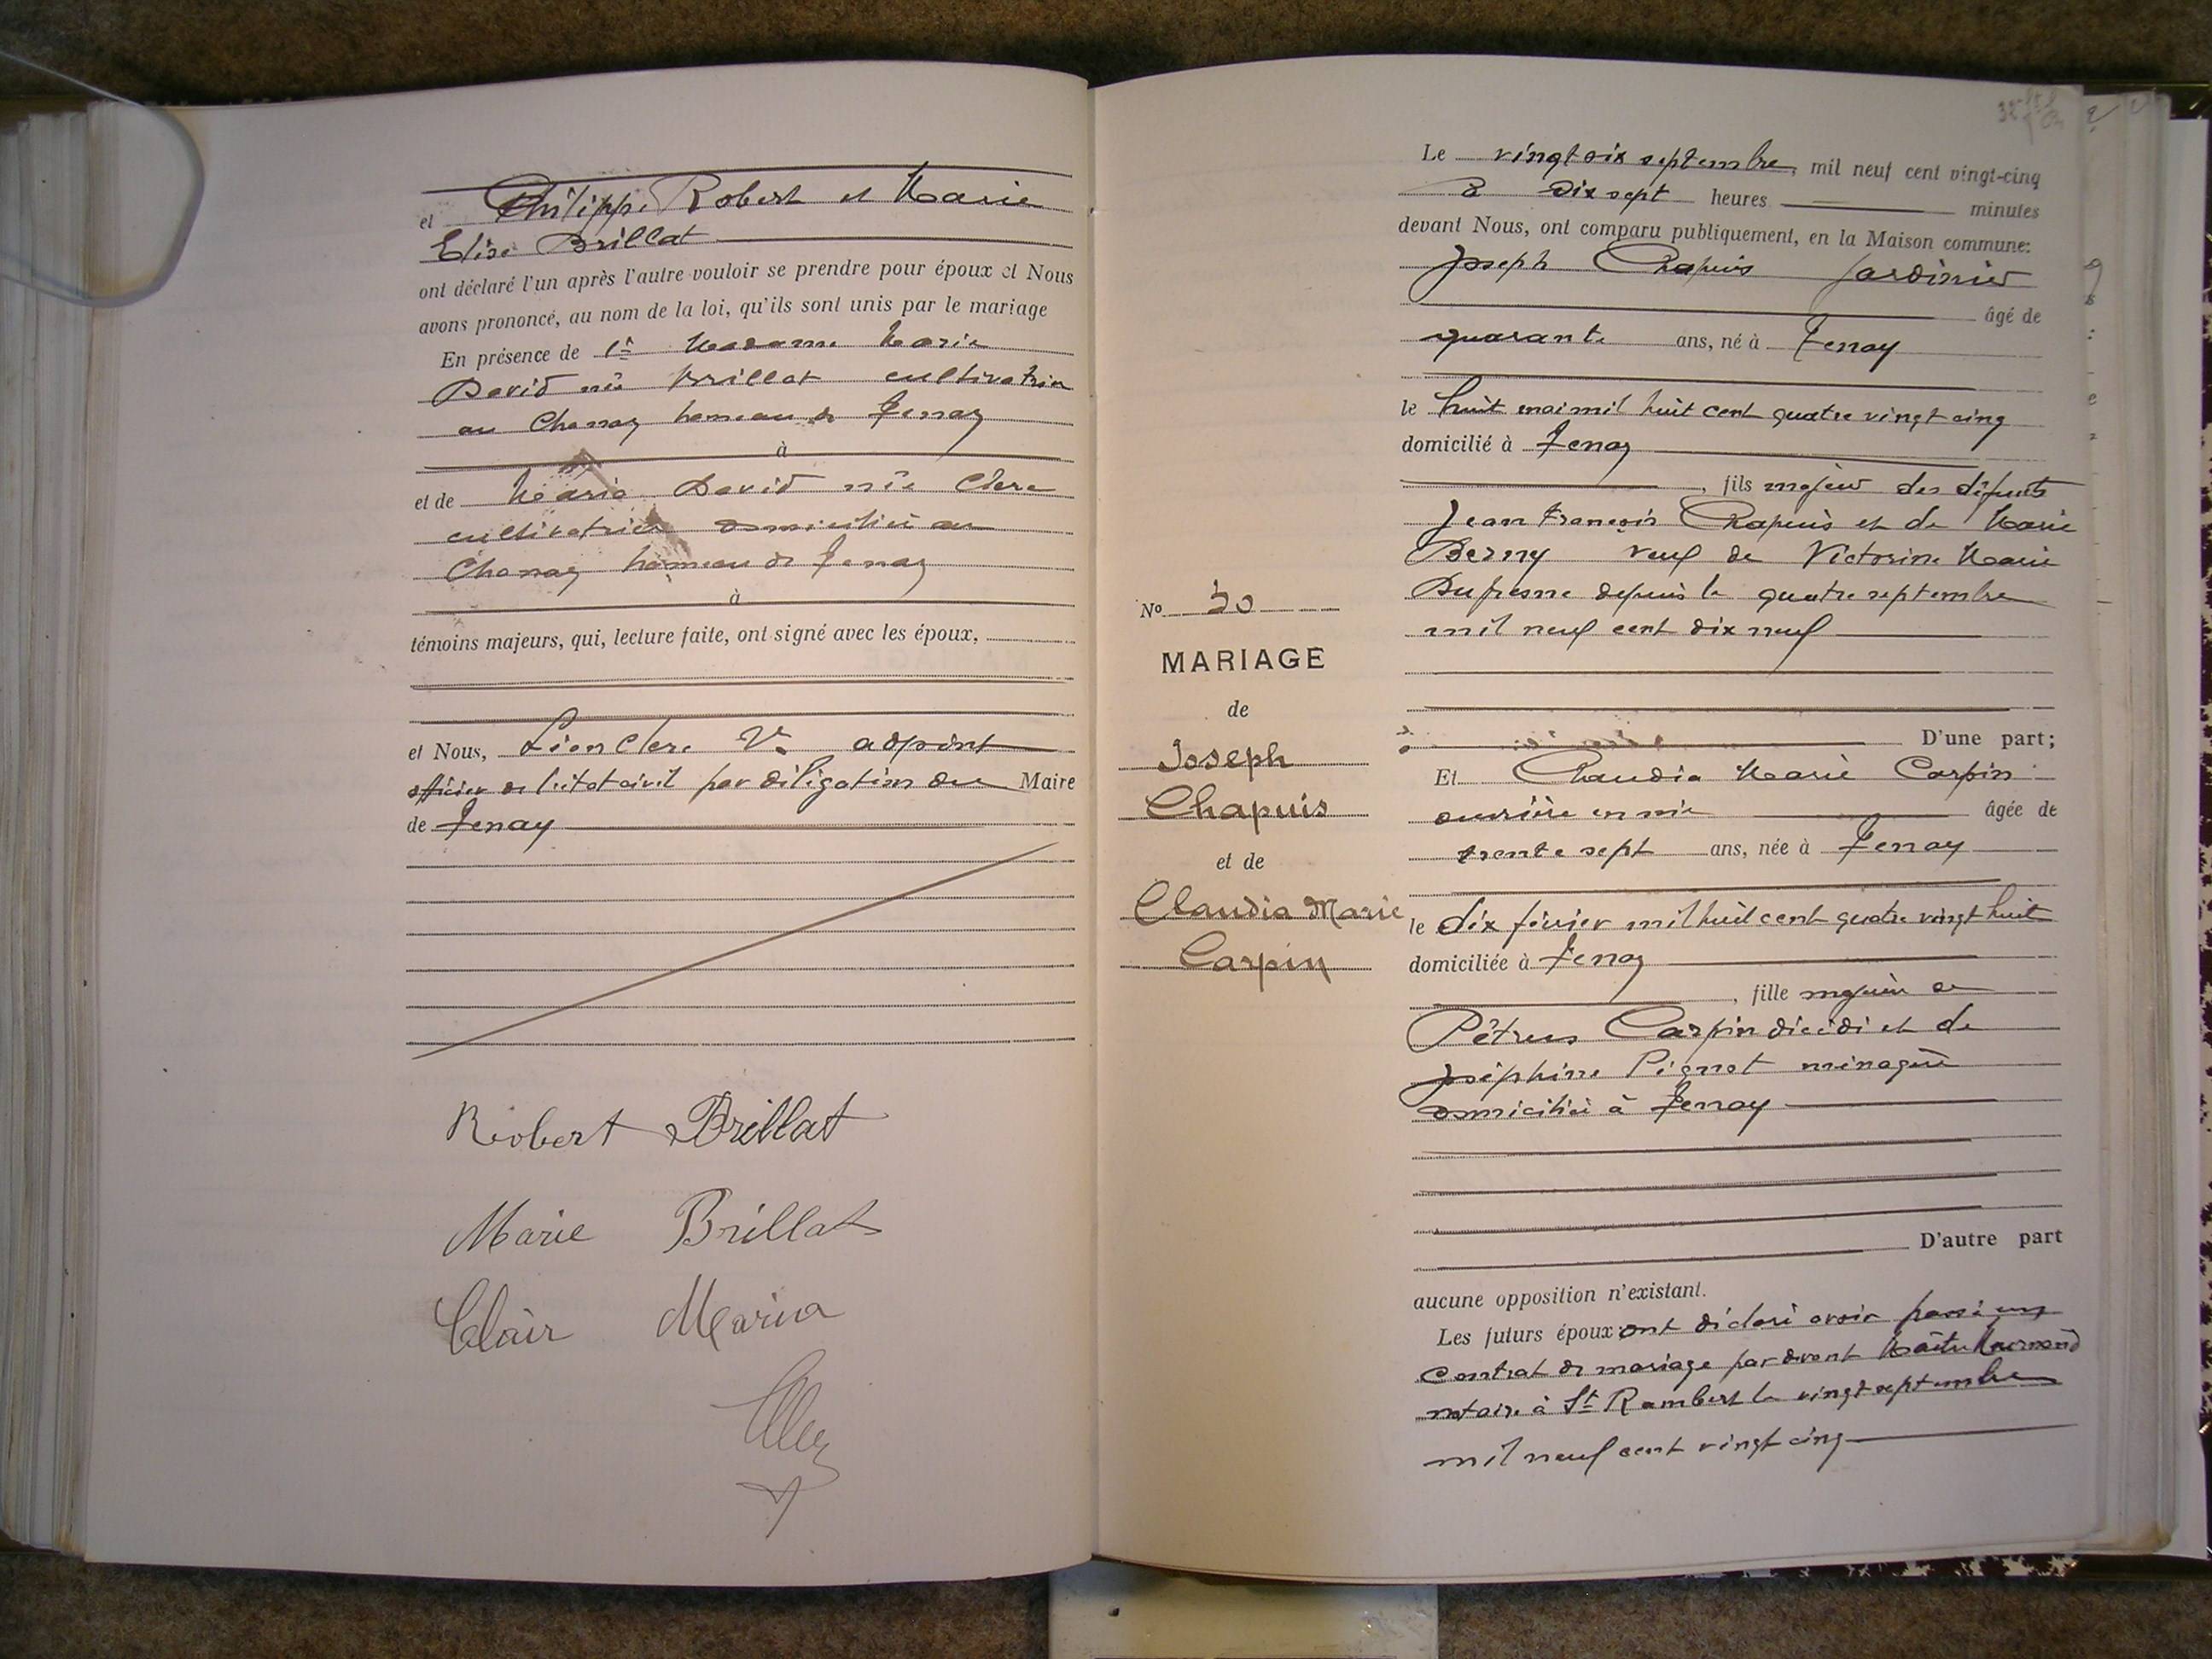 et Philippe Robert et Marie
Elise Brillat
ont déclaré l'un après l'autre vouloir se prendre pour époux et Nous
avons prononcé, au nom de la loi, qu'ils sont unis par le mariage
En présence de 1° Madame Marie
David née Brillat cultivatrice
au Chanay hameau de Tenay
à
et de Marie David née Clere
cultivatrice domiciliée au
Chanay hameau de Tenay
à
témoins majeurs, qui, lecture faite, ont signé avec les époux,
et Nous, Clere adjoint
officier de l'état civil par délégation du Maire
de Tenay
Robert Brillat
Marie Brillat
Clair Maria
No 30
MARIAGE
de
Joseph
Chapuis
et de
Claudia Marie
Carpin
Le vingt six septembre, mil neuf cent vingt-cinq
à dix sept heures minutes
devant Nous, ont comparu publiquement, en la Maison commune:
Joseph Chapuis Jardinier
âgé de
quarante ans, né à Tenay
le huit mai mil huit cent quatre vingt cinq
domicilié à Tenay
, fils majeur des défunts
Jean François Chapuis et de Marie
Berny veuf de Victorine Marie
Dufresne depuis le quatre septembre
mil neuf cent dix neuf
D'une part;
Et Claudia Marie Carpin
ouvrière en soie âgée de
trente sept ans, née à Tenay
le dix février mil huit cent quatre vingt huit
domiciliée à Tenay
, fille majeure de
Pétrus Carpin décédé et de
Joséphine Pignot ménagère
domiciliée à Tenay
D'autre part
aucune opposition n'existant.
Les futurs époux ont déclaré avoir passé un
contrat de mariage par devant Maître
notaire à St Rambert le vingt septembre
mil neuf cent vingt cinq